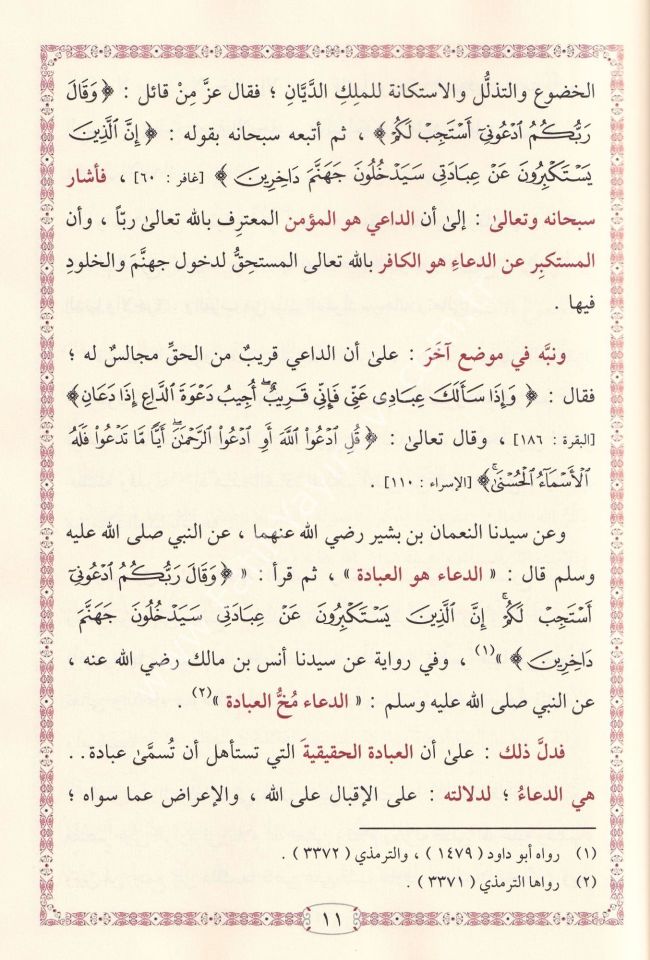 الخضوع والتذلُّل والاستكانة للملِكِ الدَّيَّانِ ؛ فقال عزَّ مِنْ قائل : ﴿ وَقَالَ
رَبُّكُمُ ٱدْعُونِىٓ أَسْتَجِبْ لَكُمْ ﴾ ، ثم أتبعه سبحانه بقوله : ﴿ إِنَّ ٱلَّذِينَ
يَسْتَكْبِرُونَ عَنْ عِبَادَتِى سَيَدْخُلُونَ جَهَنَّمَ دَاخِرِينَ ﴾ [غافر : ٦٠] ، فأشار
سبحانه وتعالىٰ : إلىٰ أن الداعي هو المؤمن المعترِف بالله تعالىٰ ربّاً ، وأن
المستكبِر عن الدعاءِ هو الكافر بالله تعالى المستحِقُّ لدخول جهنَّمَ والخلودِ
فيها .
ونبَّه في موضع آخَرَ : علىٰ أن الداعي قريبٌ من الحقِّ مجالسٌ له ؛
فقال : ﴿ وَإِذَا سَأَلَكَ عِبَادِى عَنِّى فَإِنِّى قَرِيبٌ ۖ أُجِيبُ دَعْوَةَ ٱلدَّاعِ إِذَا دَعَانِ ﴾
[البقرة : ١٨٦] ، وقال تعالىٰ : ﴿ قُلِ ٱدْعُوا۟ ٱللَّهَ أَوِ ٱدْعُوا۟ ٱلرَّحْمَـٰنَ ۖ أَيًّا مَّا تَدْعُوا۟ فَلَهُ
ٱلْأَسْمَآءُ ٱلْحُسْنَىٰ ۚ ﴾ [الإسراء : ١١٠] .
وعن سيدنا النعمان بن بشير رضي الله عنهما ، عن النبي صلى الله عليه
وسلم قال : « الدعاء هو العبادة » ، ثم قرأ : « ﴿ وَقَالَ رَبُّكُمُ ٱدْعُونِىٓ
أَسْتَجِبْ لَكُمْ ۚ إِنَّ ٱلَّذِينَ يَسْتَكْبِرُونَ عَنْ عِبَادَتِى سَيَدْخُلُونَ جَهَنَّمَ
دَاخِرِينَ ﴾ »(١) ، وفي رواية عن سيدنا أنس بن مالك رضي الله عنه ،
عن النبي صلى الله عليه وسلم : « الدعاء مُخُّ العبادة »(٢) .
فدلَّ ذلك : علىٰ أن العبادة الحقيقيةَ التي تستأهل أن تُسمَّىٰ عبادة . .
هي الدعاءُ ؛ لدلالته : على الإقبال على الله ، والإعراض عما سواه ؛
(١) رواه أبو داود ( ١٤٧٩ ) ، والترمذي ( ٣٣٧٢ ) .
(٢) رواها الترمذي ( ٣٣٧١ ) .
١١